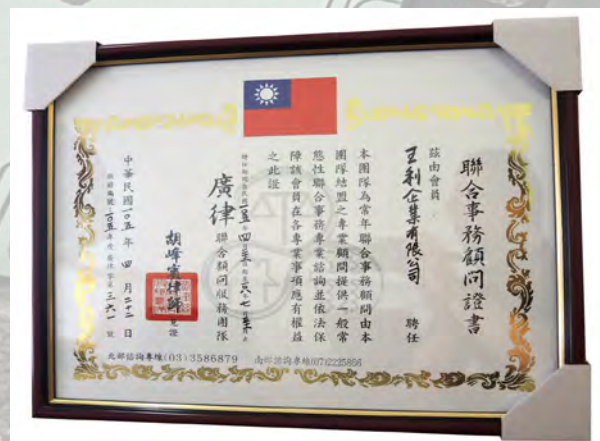 聯合事務顧問證書
茲由會員
王利企業有限公司 聘任
本團隊為常年聯合事務顧問由本
團隊結盟之專業顧問提供一般常
態性聯合事務專業諮詢並依法保
障該會員在各專業事項應有權益
之此證
廣律 聯合顧問服務團隊
胡峰賓律師 見證
中華民國一〇五年 四 月二十二 日
北部諮詢專線(03)3586879 南部諮詢專線(07)2225866